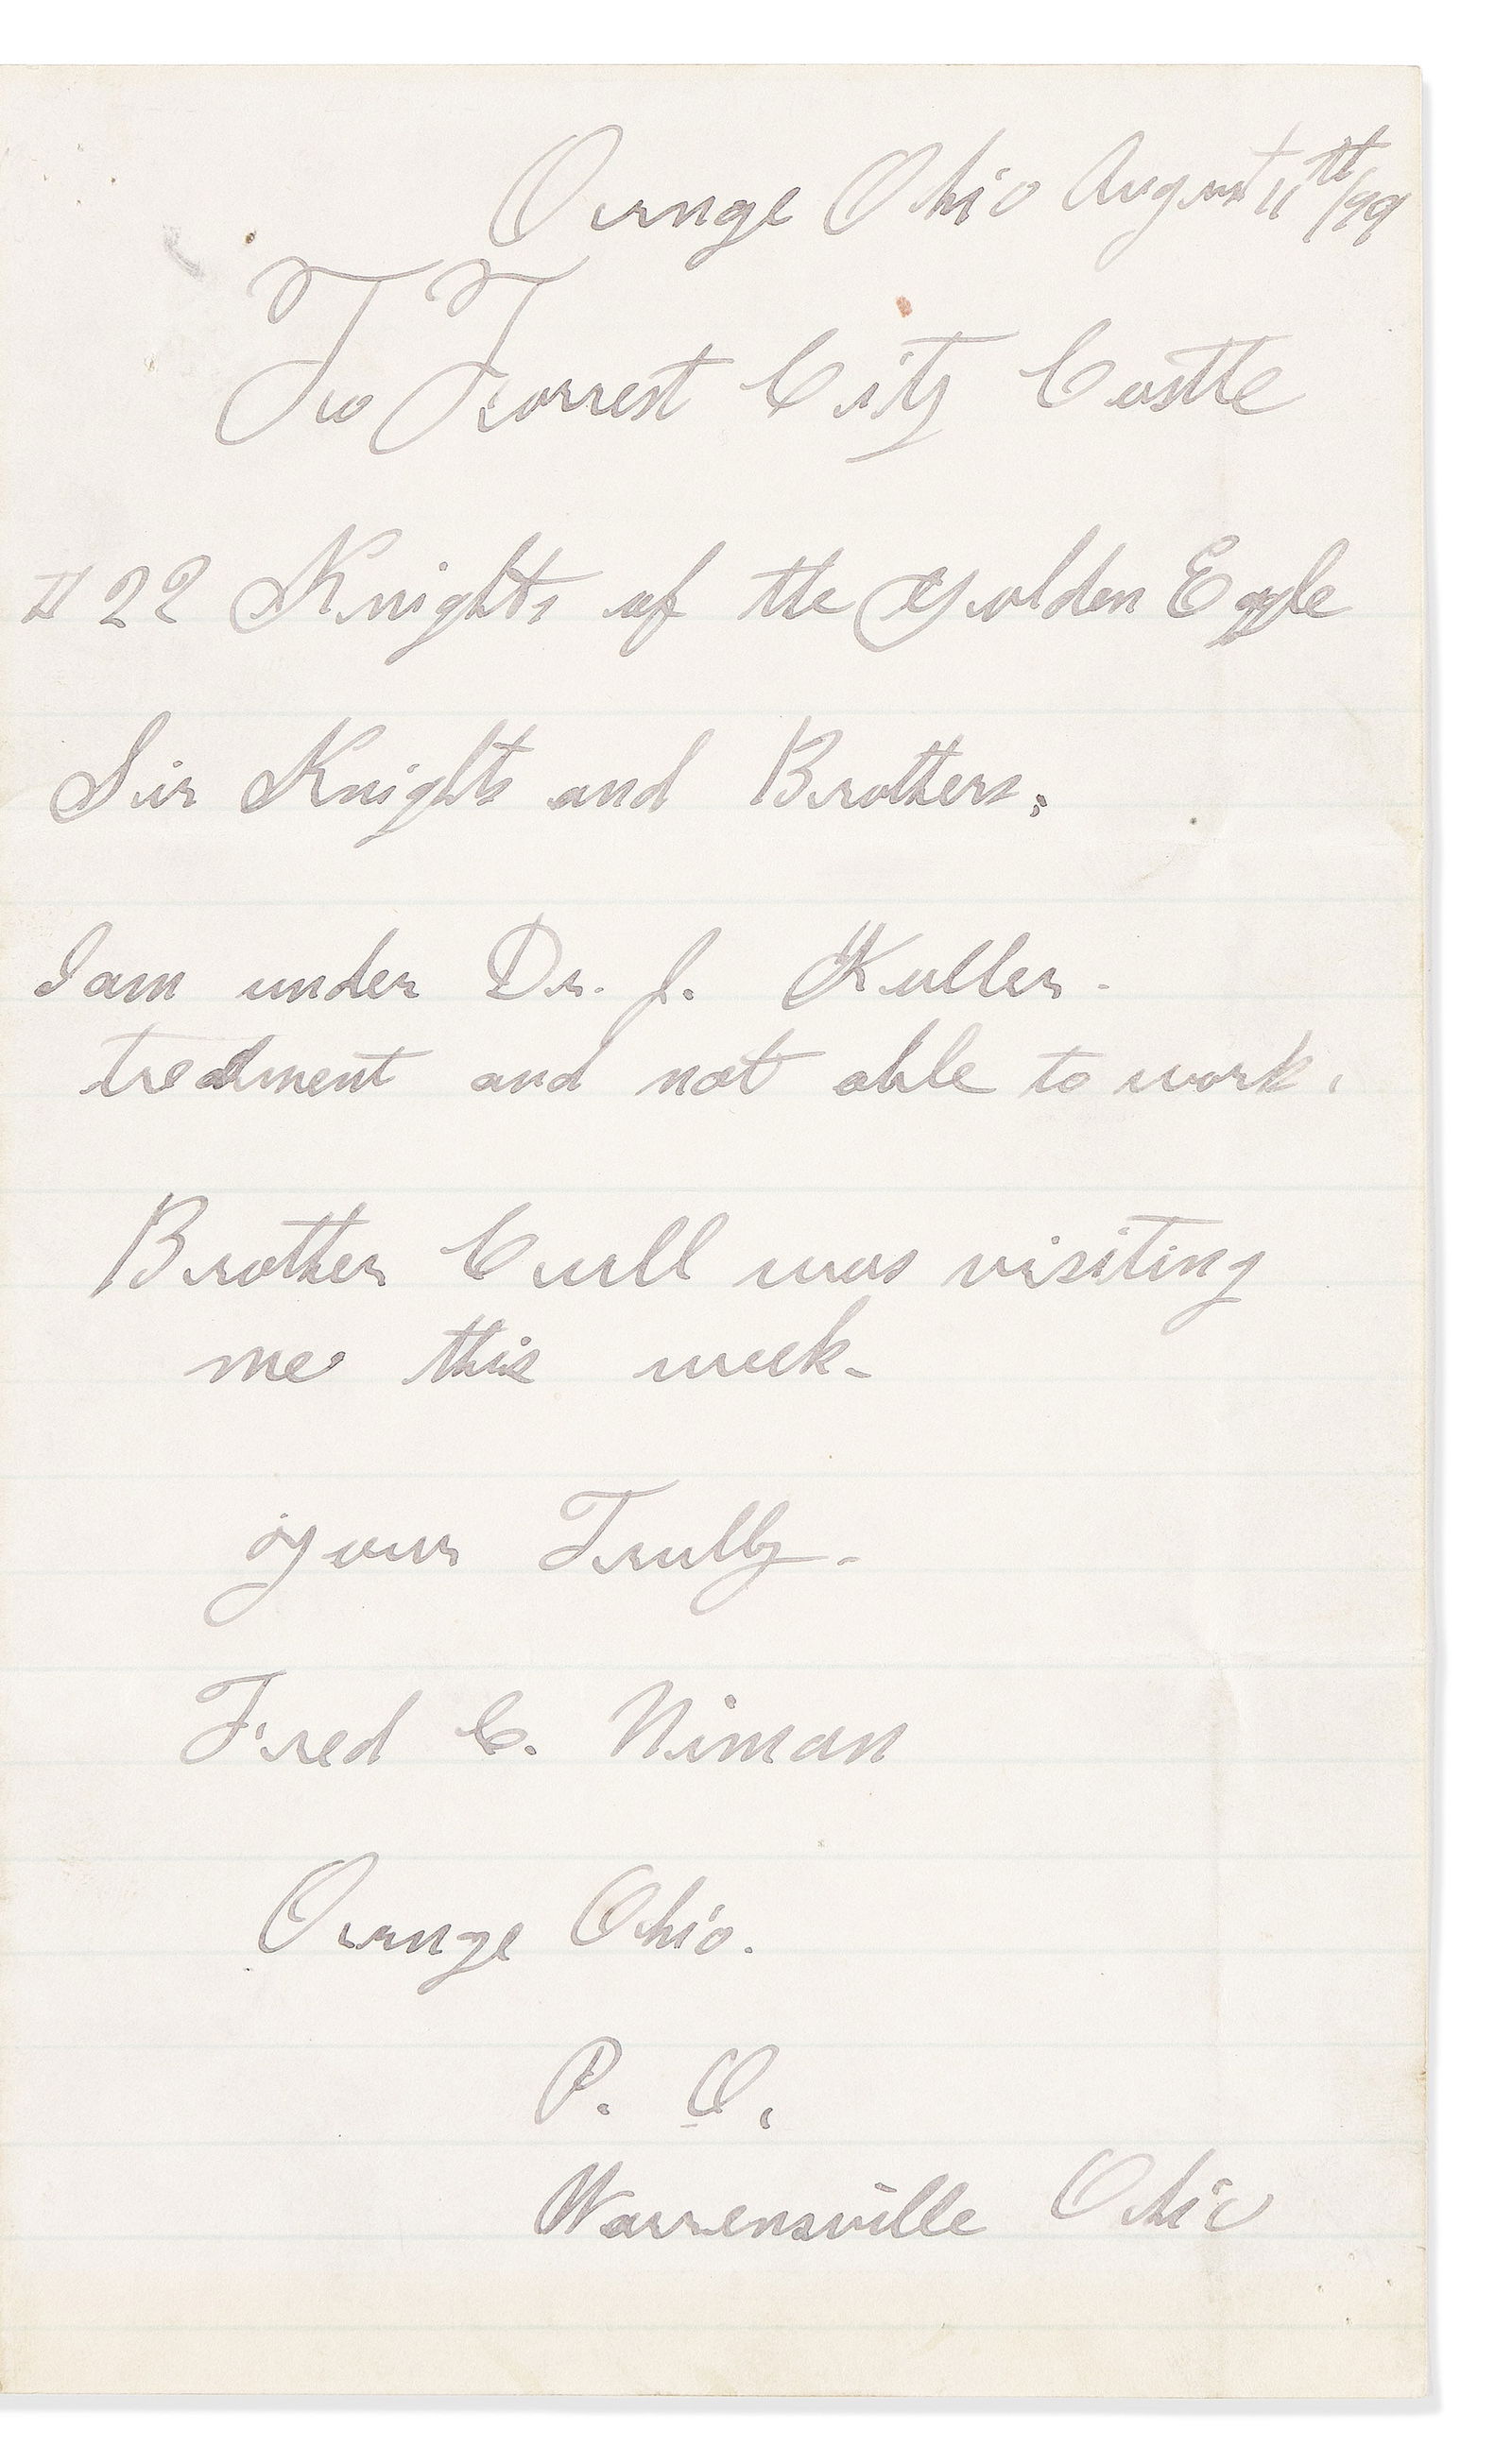 Orange Ohio August 11th/99
To Forrest City Castle
# 22 Knights of the Golden Eagle
Sir Knights and Brothers;
I am under Dr. J. Kuller.
tredment and not able to work.
Brother Curll was visiting
me this week.
your Trully.
Fred C. Niman
Orange Ohio.
P. O.
Warrensville Ohio